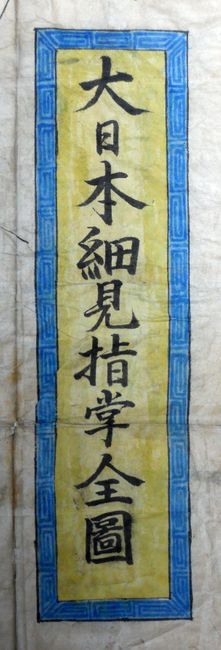 大日本細見指掌全圖